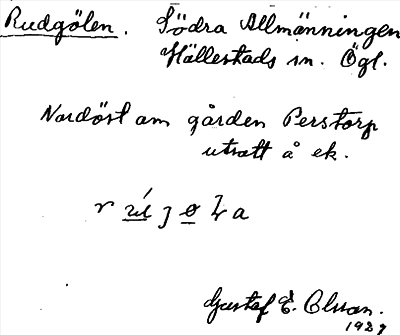 Rudgölen. Södra Allmänningen
Hällestads sn. Ögl.
Nordöst om gården Perstorp
utsatt å ek.
Gustaf E. Olsson.